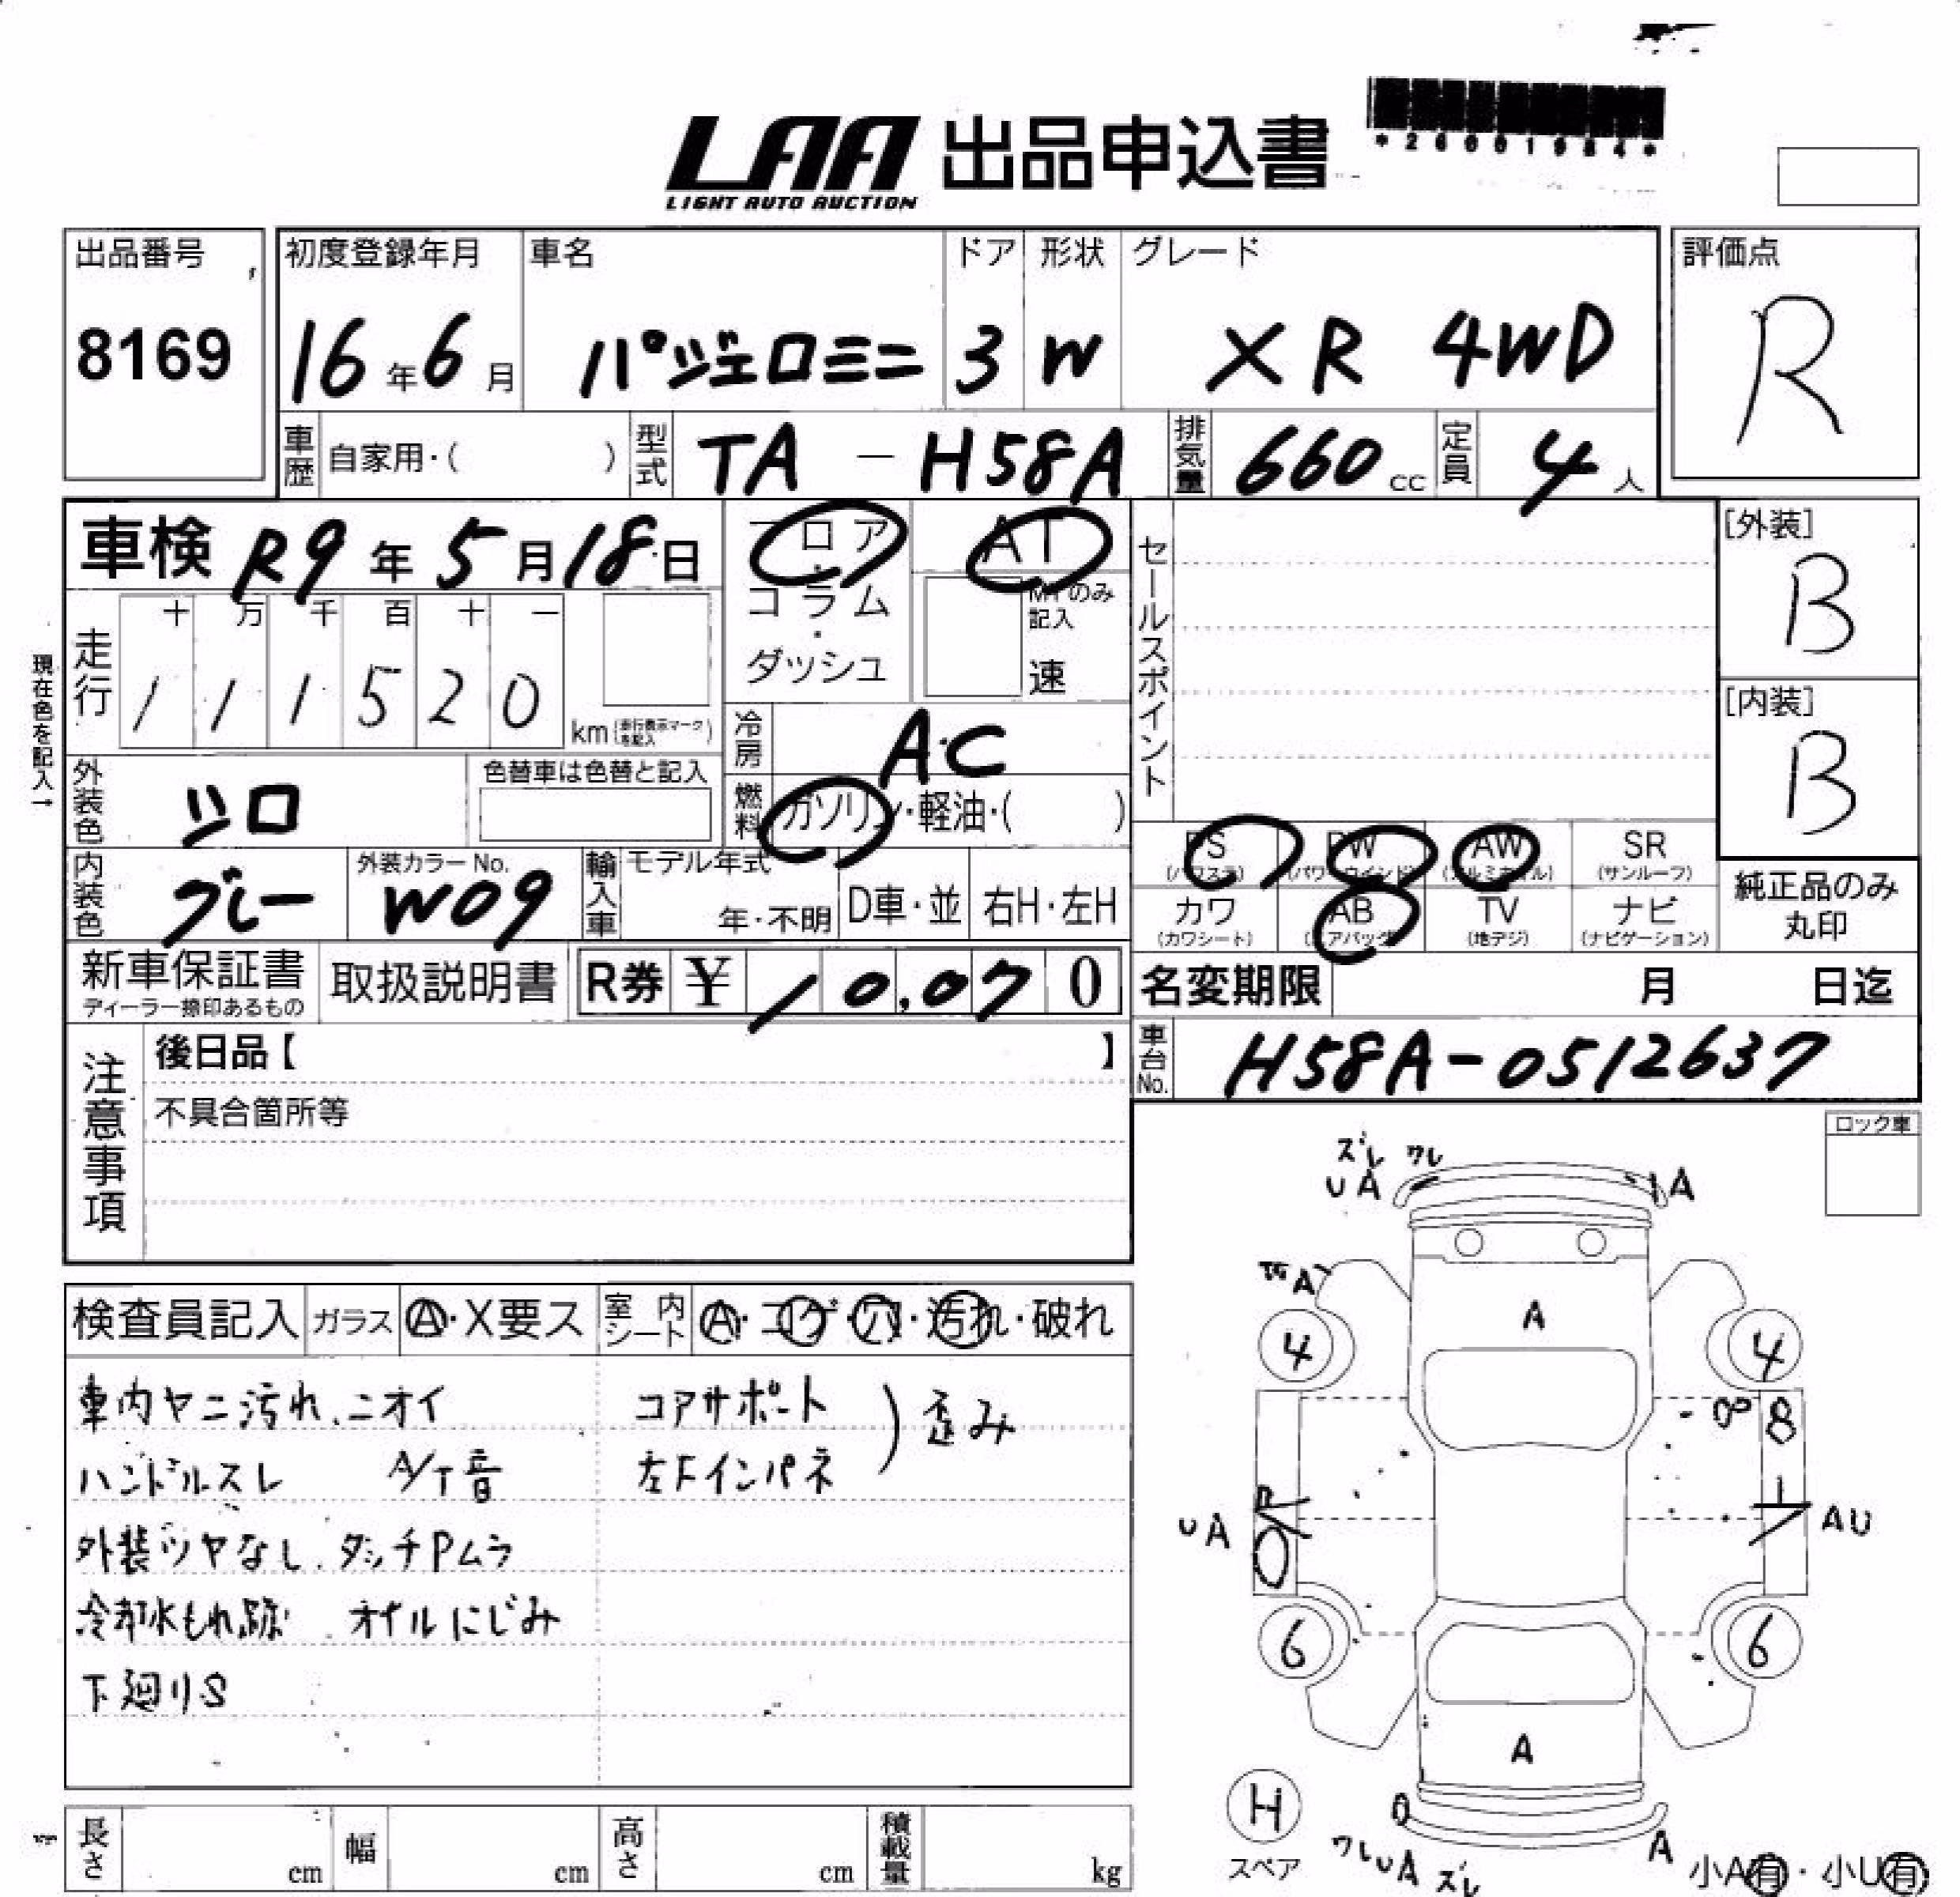 LAA 出品申込書
LIGHT AUTO AUCTION
*26001984*
出品番号
8169
初度登録年月
16年6月
車名
パジェロミニ
ドア
3
形状
W
グレード
XR 4WD
評価点
R
車歴 自家用・( )
型式 TA - H58A
排気量 660cc
定員 4人
車検 R9年5月18日
フロア・コラム・ダッシュ
AT
MTのみ記入
速
セールスポイント
[外装]
B
[内装]
B
現在色を記入→
走行
十 万 千 百 十 一
1 1 1 5 2 0
km (走行表示マークを記入)
冷房 AC
外装色 シロ
色替車は色替と記入
燃料 ガソリン・軽油・( )
内装色 グレー
外装カラーNo.
W09
輸入車
モデル年式
年・不明
D車・並
右H・左H
PS (パワステ)
PW (パワーウインド)
AW (アルミホイル)
SR (サンルーフ)
カワ (カワシート)
AB (エアバッグ)
TV (地デジ)
ナビ (ナビゲーション)
純正品のみ
丸印
新車保証書
ディーラー捺印あるもの
取扱説明書
R券 ¥ 10,070
名変期限 月 日迄
注意事項
後日品【 】
不具合箇所等
車台No. H58A-0512637
ロック車
検査員記入
ガラス A・X要ス
室内シート A・コゲ・穴・汚れ・破れ
車内ヤニ汚れ、ニオイ
ハンドルスレ A/T音
外装ツヤなし、タッチPムラ
冷却水もれ跡 オイルにじみ
下廻りS
コアサポート
左Fインパネ
) 歪み
ズレ ワレ
UA
A
A
A
4
4
8
UA
AU
6
6
A
H
スペア
ワレUA ズレ
A
小A有・小U有
長さ cm
幅 cm
高さ cm
積載量 kg